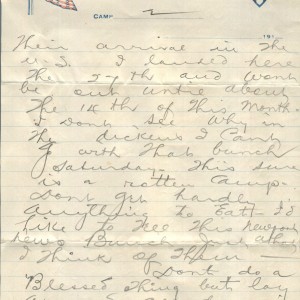 CAMP 2
191
Their arrival in the
U.S. I landed here
the 5th and wont
be out untie about
the 14th of this month
I Dont see why in
the dickens I Cant
be with that bunch
Saturday. This sure
is a rotten Camp-
Dont get hardly
anything to Eat- I'd
like to tell this Newport
News Bunch Just what
I Think of Them-
Dont do a
Blessed thing but lay